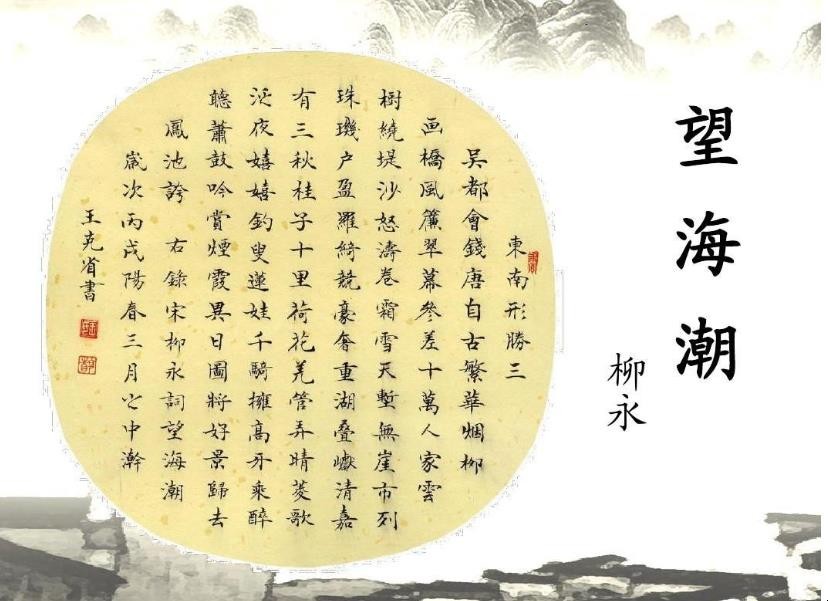 望海潮
柳永
東南形勝三
吳都會錢唐自古繁華烟柳
画橋風簾翠幕參差十萬人家雲
樹繞堤沙怒濤卷霜雪天塹無崖市列
珠璣户盈羅綺競豪奢重湖疊巘清嘉
有三秋桂子十里荷花羌管弄晴菱歌
泛夜嬉嬉釣叟蓮娃千騎擁高牙乘醉
聽蕭鼓吟賞煙霞異日圖將好景歸去
鳳池誇 右錄宋柳永詞望海潮
歲次丙戌陽春三月之中澣
王克省書